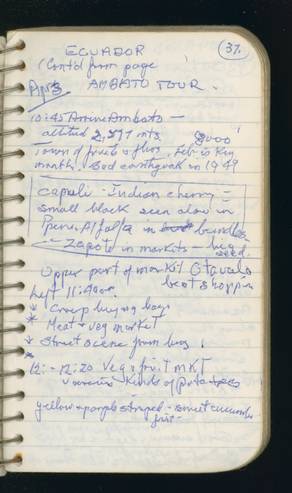 37.
ECUADOR
(Cont'd from page
AMBATO TOUR.
10:45 Arrive Ambato —
altitud 2,597 mts. 8000'
Town of fruit & flws. Feb is big
month. Bad earthquake in 1949
capuli - Indian cherry =
small black seen also in
Peru. Alfalfa in bundles
Zapote in markets - big
seed.
Upper part of market Otavalo
best shopper
Left 11:40am.
Group buying bags
* Meat & veg market
* Street scene from bus.
* 12: - 12:20 Veg & fruit MKT
various kinds of potatoes
yellow & purple striped - sweet cucumber
fruit -